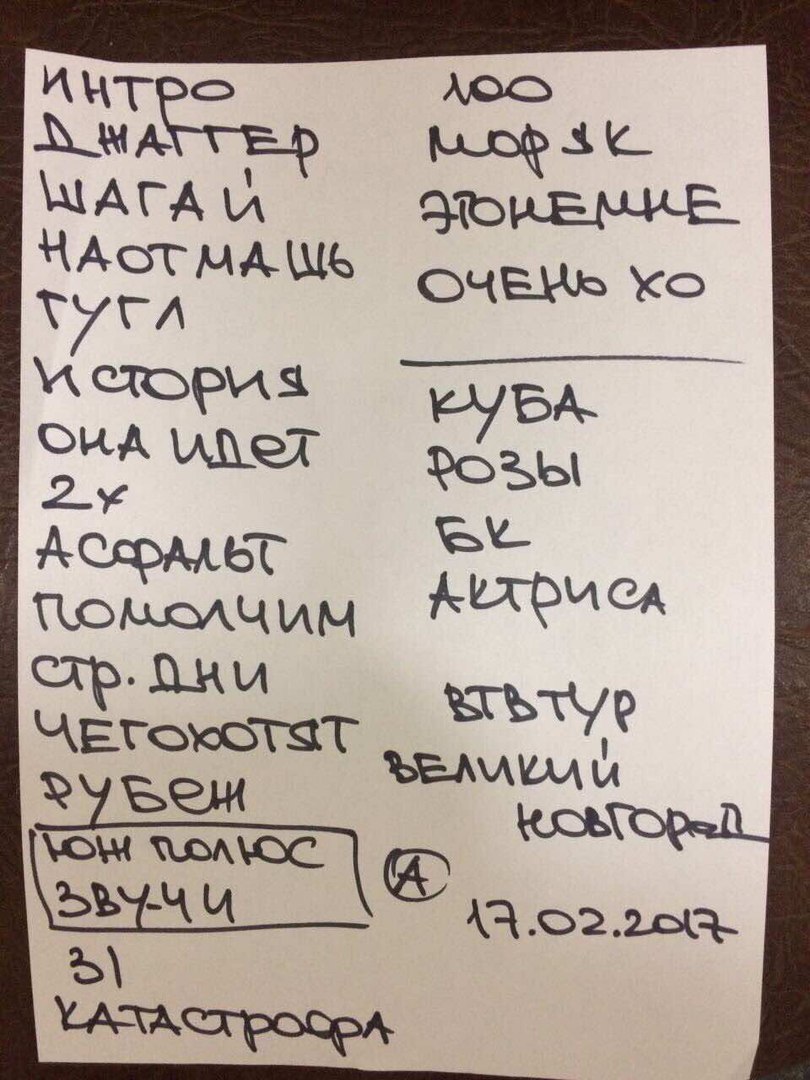 ИНТРО
ДЖАГГЕР
ШАГАЙ
НАОТМАШЬ
ГУГЛ
ИСТОРИЯ
ОНА ИДЕТ
2х
АСФАЛЬТ
ПОМОЛЧИМ
СТР. ДНИ
ЧЕГОХОТЯТ
РУБЕЖ
ЮЖ ПОЛЮС
ЗВУЧИ
31
КАТАСТРОФА
100
МОРЯК
ЭТОНЕМНЕ
ОЧЕНЬ ХО
КУБА
РОЗЫ
БК
АКТРИСА
ВТВТУР
ВЕЛИКИЙ
НОВГОРОД
А
17.02.2017